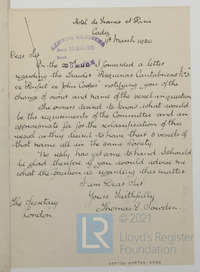 Hotel de France et Paris
Cadiz
March 1920
Dear Sir
On the I forwarded a letter
regarding the Trawler
ex "John Cooper" notifying you of the
change of owners and name of the vessel in question
The owners desired to know what would
be the requirements of the Committee and an
approximate fee for the reclassification of this
vessel as they desired to have their vessels of
that name all in the same Society.
No reply has yet come to hand. I should
be glad therefore if you would advise me
what the position is regarding this matter
I am Dear Sir
Yours Faithfully
Thomas E. Dowden.
The Secretary
London.
LONDON
©2021
LR
Lloyd's Register
Foundation